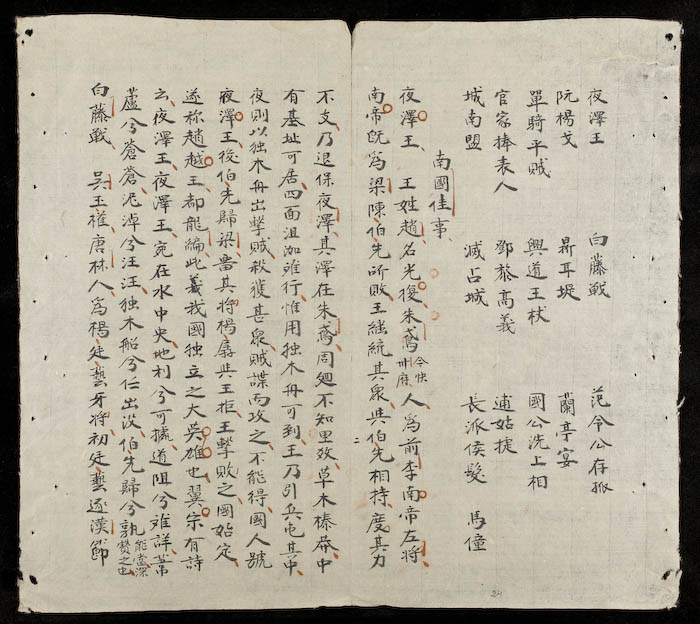 夜澤王 白藤戰 范令公存孤
阮楊戈 鼎耳堤 蘭亭宴
單騎平賊 興道王杖 國公洗上相
官家捧表人 鄧恭髙義 逋姑捷
城南盟 滅占城 長派侯髮 馬僮
南國佳事
夜澤王 王姓趙名光復朱鳶 今快州府 人為前李南帝左將
南帝旣為梁陳伯先所敗王継統其衆共伯先相持度其力
不支乃退保夜澤其澤在朱鳶周廻不知里数草木榛莽中
有基址可居四面沮洳难行惟用独木舟可到王乃引兵屯其中
夜則以独木舟出擊賊殺獲甚衆賊諜而攻之不能得國人號
夜澤王後伯先歸梁畱其將楊孱共王拒王擊敗之國始定
遂称趙越王都龍編此義我國独立之大英雄也翼宗有詩
云夜澤王夜澤王宛在水中央地利兮可據道阻兮难詳葦
蘆兮蒼蒼泥淖兮汪汪独木船兮任出没伯先歸兮孰
白藤戰 吳王權唐林人為楊廷藝牙將初廷藝逐漢節
24